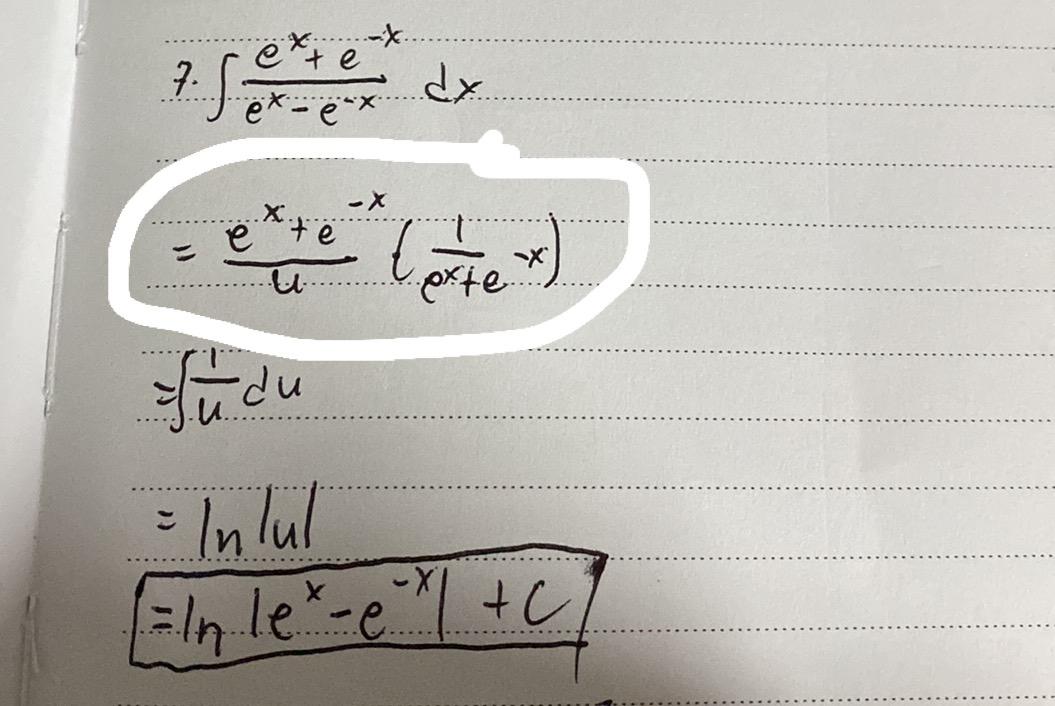 7. ∫ (e^x + e^-x)/(e^x - e^-x) dx
= (e^x + e^-x)/u (1/(e^x + e^-x))
= ∫ 1/u du
= ln |u|
= ln |e^x - e^-x| + C